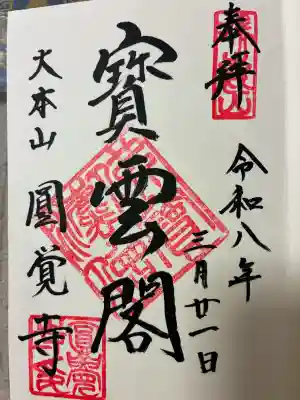 奉拜
令和八年
三月廿一日
寳雲閣
大本山
圓覚寺